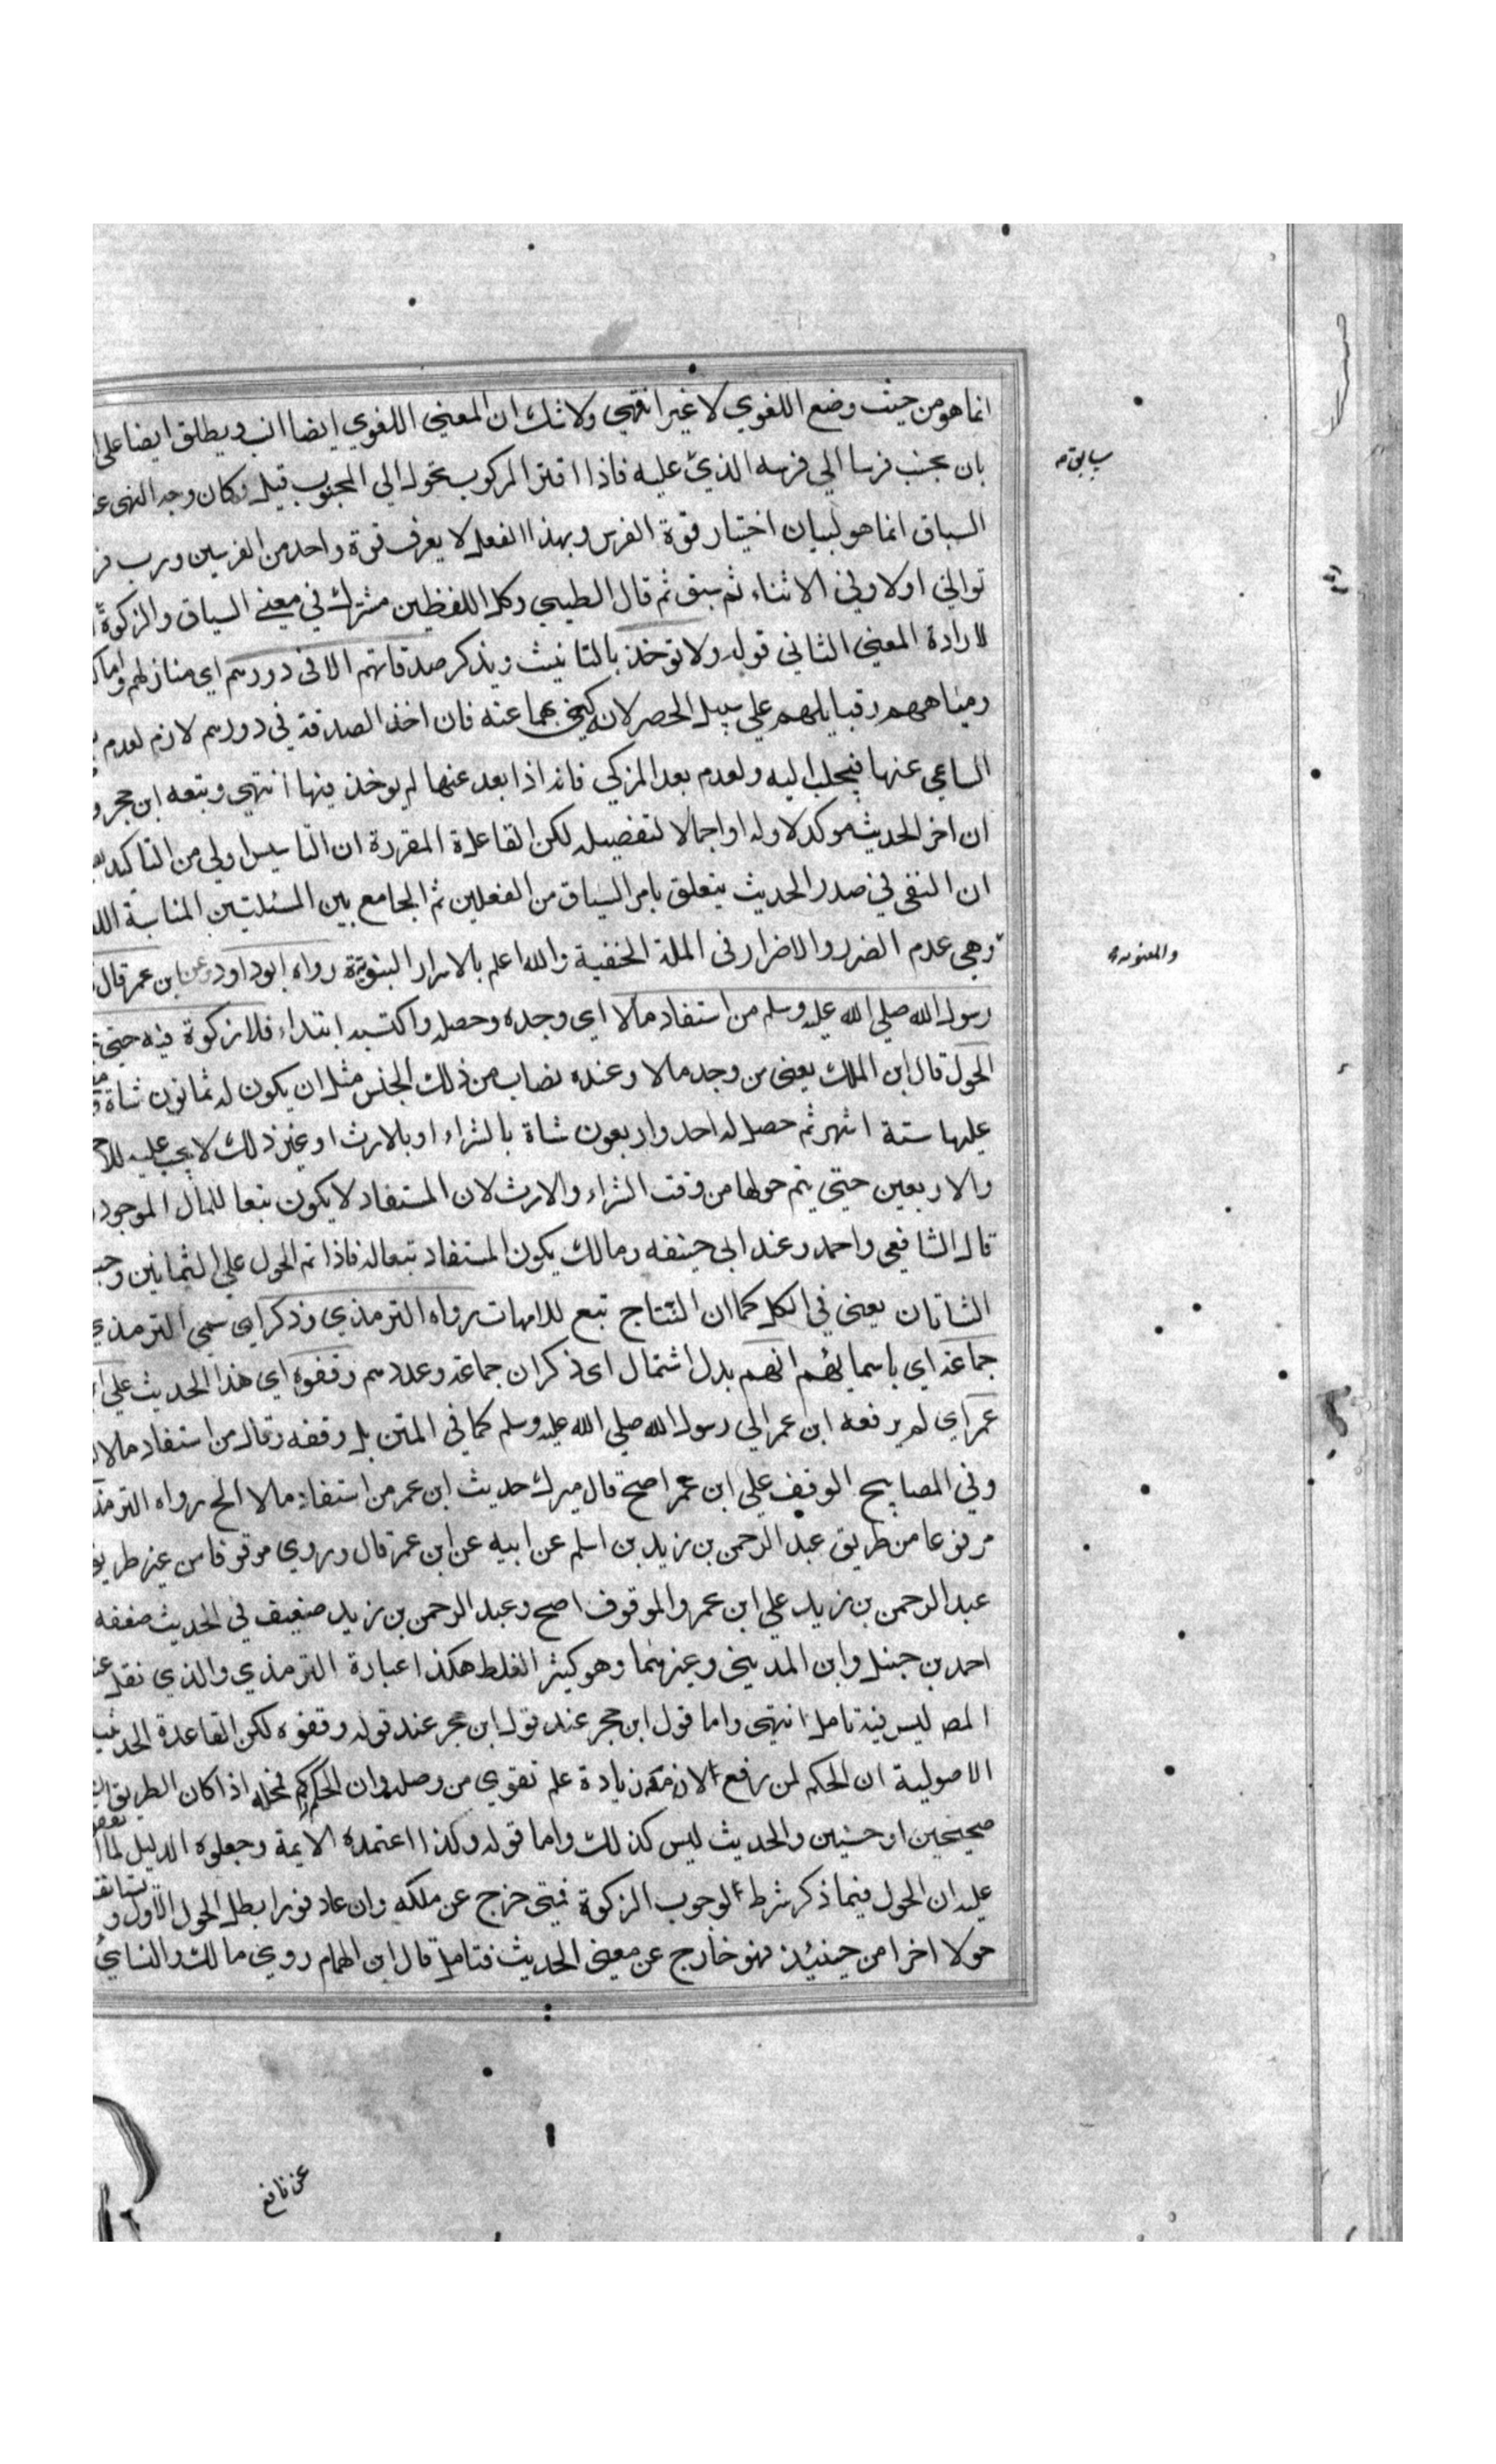 انما هو من حيث وضع اللغوي لا غير انتهي ولا شك ان المعني اللغوي ايضا انسب ويطلق ايضا علي
بان يجنب فرسا الي فرسه الذي عليه فاذا افتر المركوب تحول الي المجنوب قيل وكان وجه النهي
سابقه
السباق انما هو لبيان اختبار قوة الفرس وبهذا الفعل لا يعرف قوة واحد من الفرسين ورب
تواني اولا وفي الاثناء ثم سبق ثم قال الطيبي وكل اللفظين مشترك في معني السباق والزكوة
لارادة المعني الثاني قوله ولا توخذ بالتانيث ويذكر صدقاتهم الا في دورهم اي منازلهم واما
ومياههم وقبايلهم علي سبيل الحصر لانه كني بهما عنه فان اخذ الصدقة في دورهم لازم لعدم
الساعي عنها فيجلب اليه ولعدم بعد المزكي فانه اذا بعد عنها لم يوخذ فيها انتهي وتبعه ابن حجر
ان اخر الحديث موكد لاوله او اجمالا لتفصيله لكن القاعدة المقررة ان التاسيس اولي من التاكيد
ان النفي في صدر الحديث يتعلق بامر السباق من الفعلين ثم الجامع بين المسئلتين المناسبة
وهي عدم الضرر والاضرار في الملة الحنفية والله اعلم بالاسرار النبوية رواه ابو داود وعن ابن عمر قال
والمعنوية
رسول الله صلي الله عليه وسلم من استفاد مالا اي وجده وحصله واكتسبه ابتداء فلا زكوة فيه حتي
الحول قال ابن الملك يعني من وجد مالا وعنده نصاب من ذلك الجنس مثل ان يكون له ثمانون شاة
عليها ستة اشهر ثم حصل له احد واربعون شاة بالشراء او بالارث او غير ذلك لا يجب عليه
والاربعين حتي يتم حولها من وقت الشراء والارث لان المستفاد لا يكون تبعا للمال الموجود
قال الشافعي واحمد وعند ابي حنيفه ومالك يكون المستفاد تبعا له فاذا تم الحول علي الثمانين
الشاتان يعني في الكل كما ان النتاج تبع للامهات رواه الترمذي وذكر اي سمي الترمذي
جماعة اي باسمائهم انهم بدل اشتمال اي ذكر ان جماعة وعددهم وقفوه اي هذا الحديث علي
عمر اي لم يرفعه ابن عمر الي رسول الله صلي الله عليه وسلم كما في المتن بل وقفه وقال من استفاد مالا
وفي المصابيح الوقف علي ابن عمر اصح قال ميرك حديث ابن عمر من استفاد مالا الخ رواه
مرفوعا من طريق عبد الرحمن بن زيد بن اسلم عن ابيه عن ابن عمر قال وروي موقوفا من غير طريق
عبد الرحمن بن زيد علي ابن عمر والموقوف اصح وعبد الرحمن بن زيد ضعيف في الحديث ضعفه
احمد بن حنبل وابن المديني وغيرهما وهو كثير الغلط هكذا عبارة الترمذي والذي نقل
المص ليس فيه تامل انتهي واما قول ابن حجر عند قول ابن حجر عند قوله وقفوه لكن القاعدة
الاصولية ان الحكم لمن رفع لان معه زيادة علم تقوي من وصله وان الحكم محله اذا كان الطريق
صحيحين او حسنين والحديث ليس كذلك واما قوله وكذا اعتمده الايمة وجعلوه الدليل لما
عليه ان الحول فيما ذكر شرط لوجوب الزكوة فمتي خرج عن ملكه وان عاد فورا بطل الحول الاول
حولا اخرا من حينئذ فهو خارج عن معني الحديث فتامل قال ابن الهمام روي مالك والنسايي
عن نافع